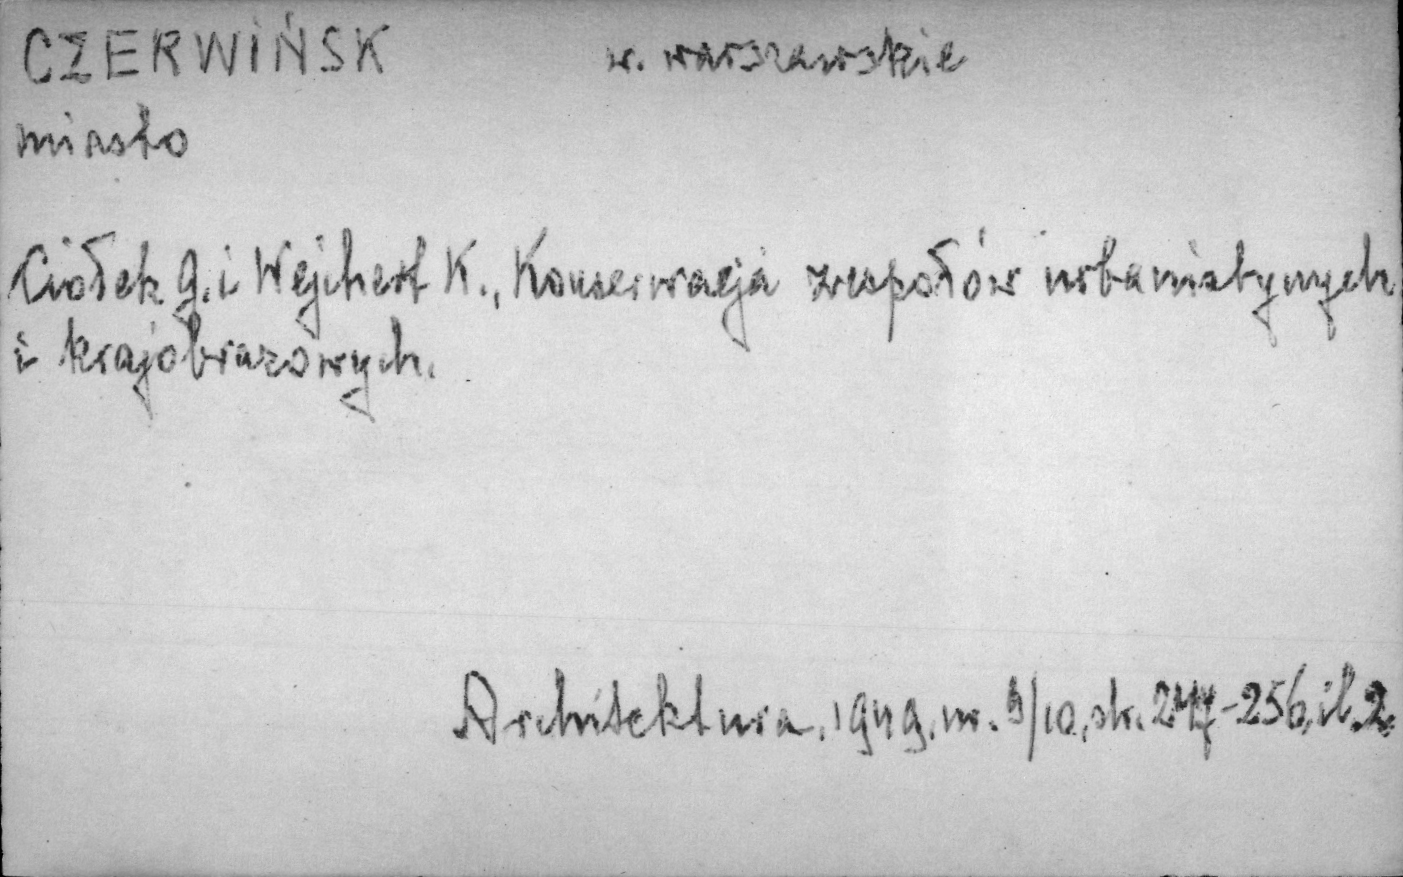 CZERWIŃSK w. warszawskie
miasto
Ciołek G. i Wejchert K., Konserwacja zespołów urbanistycznych
i krajobrazowych.
Architektura, 1949, nr. 9/10, str. 247-256, il. 2.